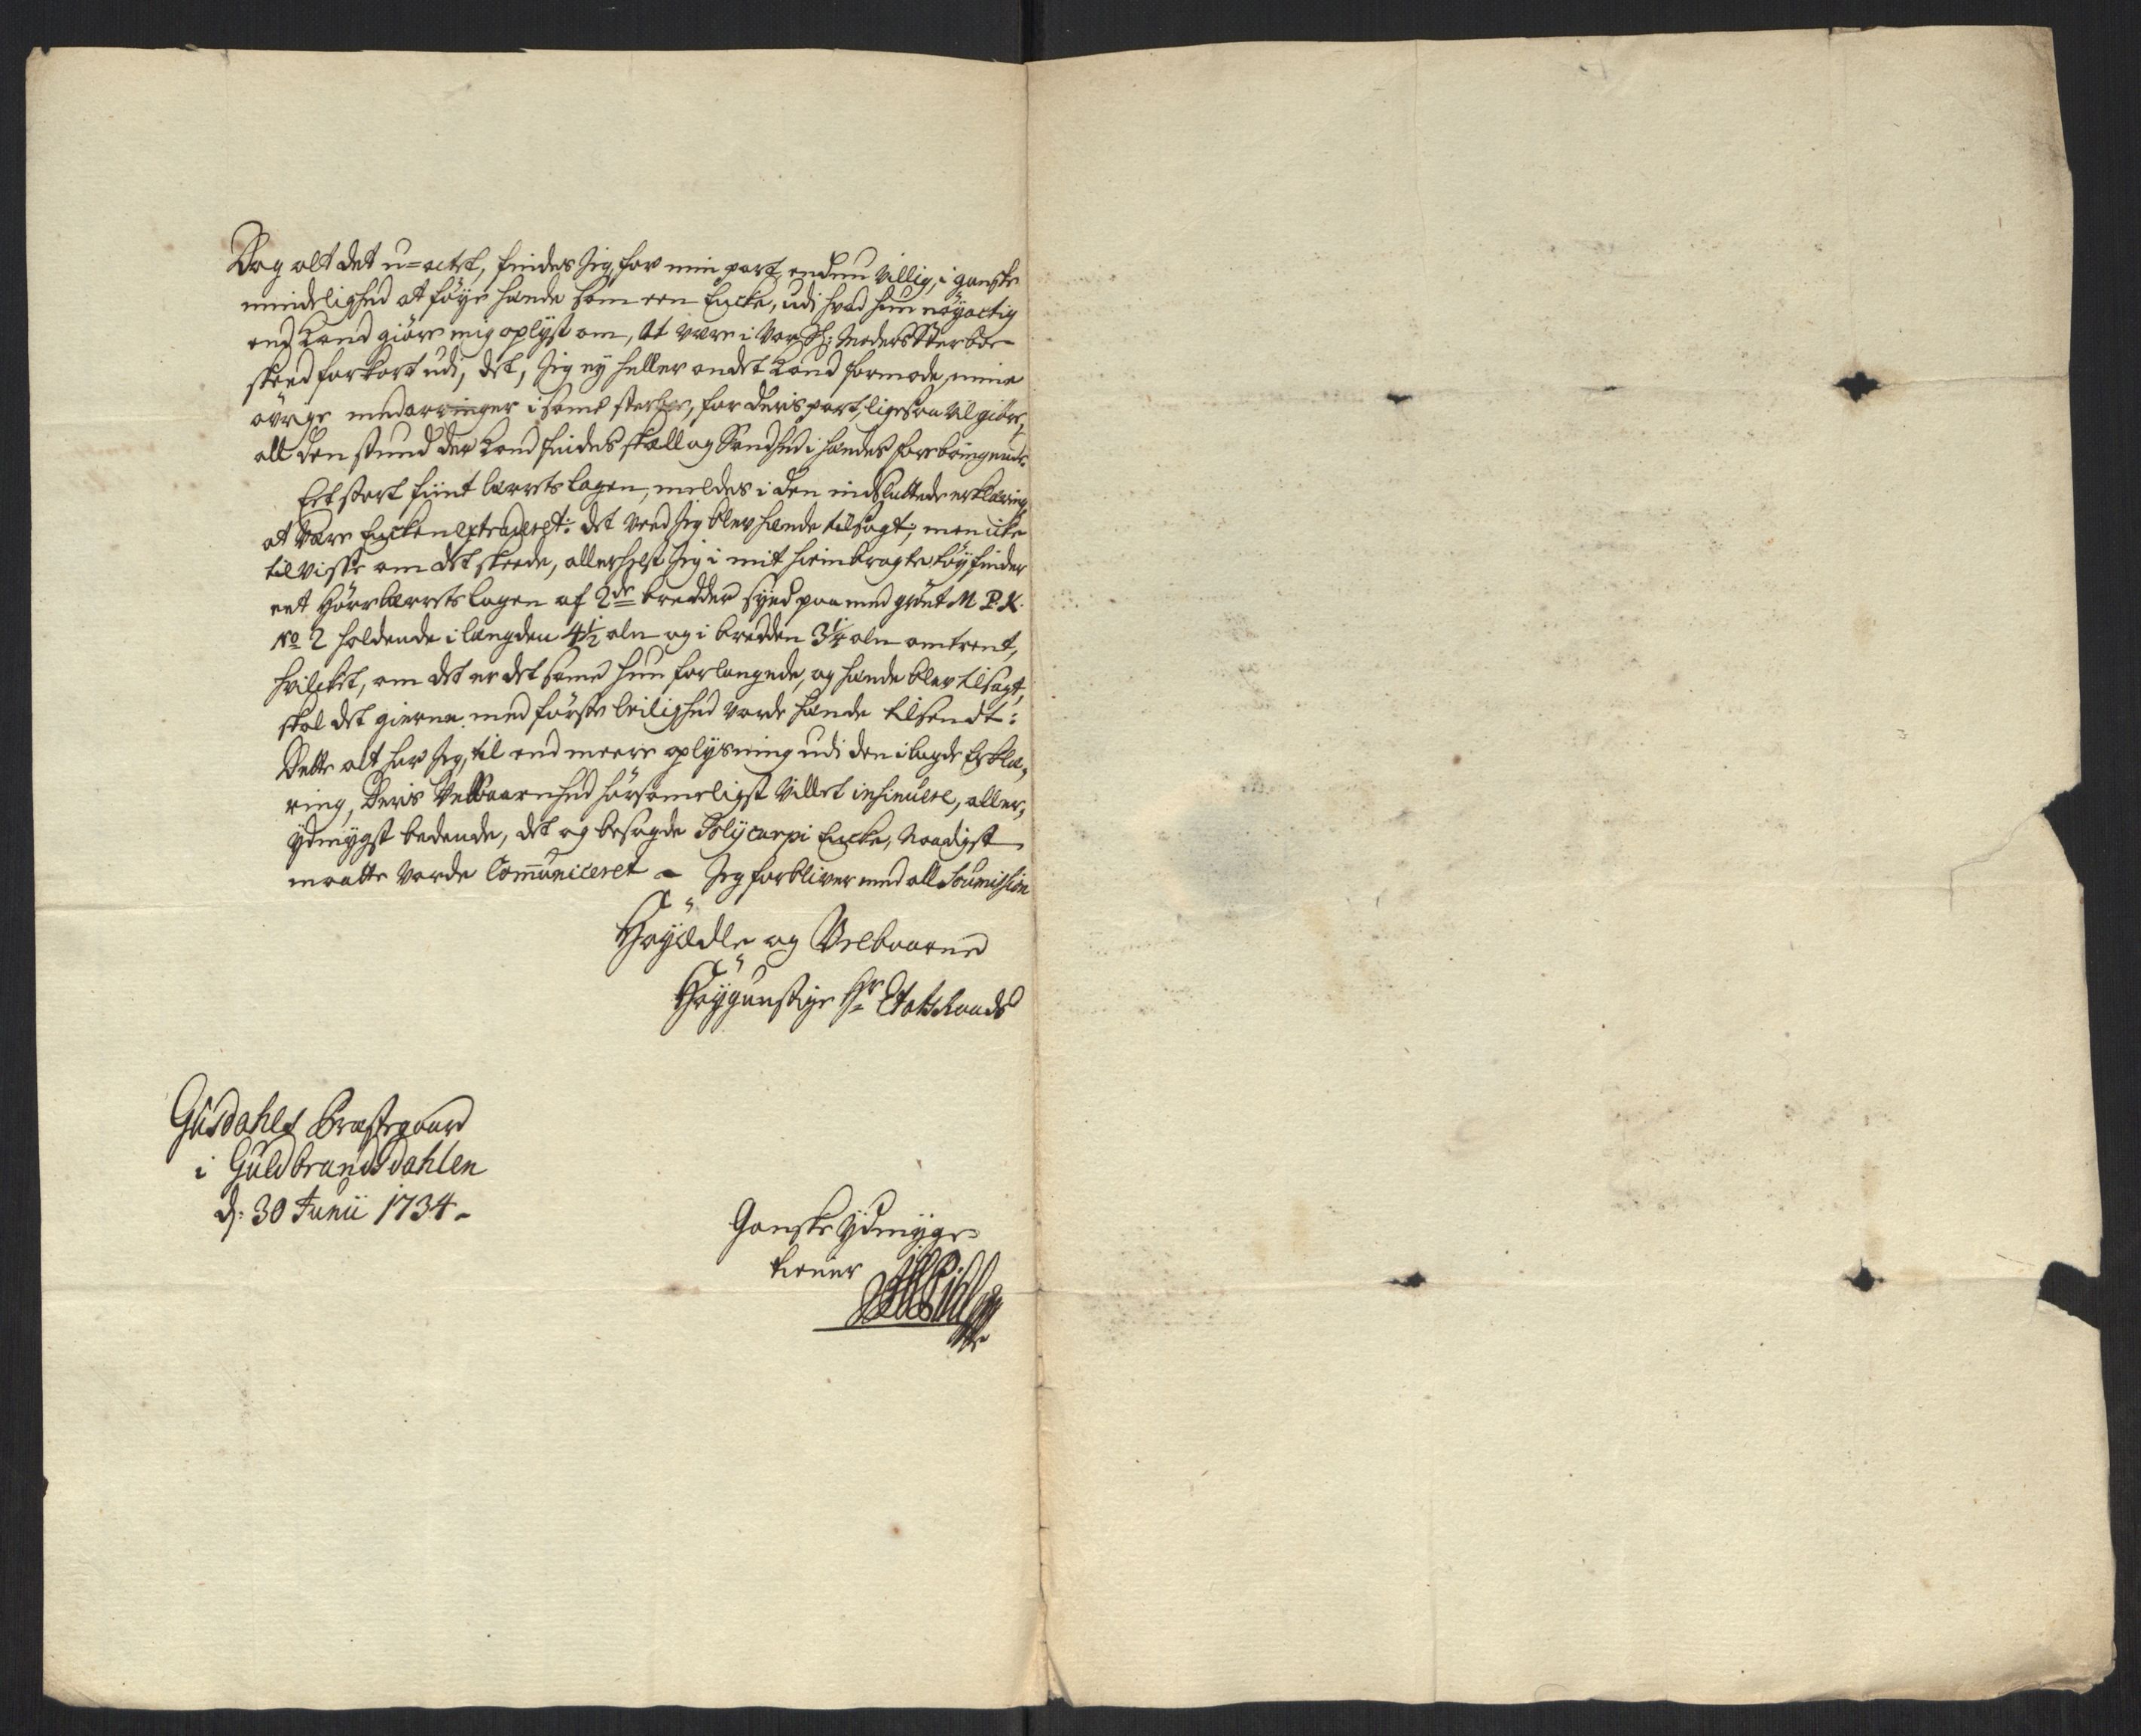 Dog alt det u=actet, findes Jeg, for min part, endnu villig, i ganske
mindelighed at föye hænde som een Encke, udi hvad hun nöyactig
end kand giöre mig oplyst om, at være i Vor Sl: Moders Sterboe
skeed forkort udi, det, Jeg ey heller andet kand formode, mine
övrige medarvinger i samme sterboe, for deris part, ligesaa vil giöre,
all den stund der kand findes skiæll og Sandhed i hændes forebringende.
Eet stort fiint lærrets lagen, meldes i den indsluttede erklæring,
at være Encken extraderet: det veed Jeg blev hænde tilsagt; men icke
til visse om det skeede, allerhelst Jeg i mit hiembragte töy finder
eet Hörrlærrets lagen af 2de bredder syed paa med grönt M P. K.
No 2 holdende i længden 4½ alen og i bredden 3¼ alen omtrent,
hvilcket, om det er det samme hun forlangede, og hænde blev tilsagt,
skal det gierne med förste leilighed vorde hænde tilsendt:
Dette alt har Jeg, til end meere oplysning udi den ilagde Erklæ,
ring, Deris Velbaarenhed hörsommeligst villet insinuere, aller,
ydmygst bedende, det og besagde Polycarpi Encke, naadigst
maatte vorde Com̄uniceret - Jeg forbliver med all Soumission
Höyædle og Velbaarne
Höygunstige Hr Etatsraads
Gusdahls Præstegaard
i Guldbrandsdahlen
d: 30 Junii 1734 -
Ganske ydmyge
tiener